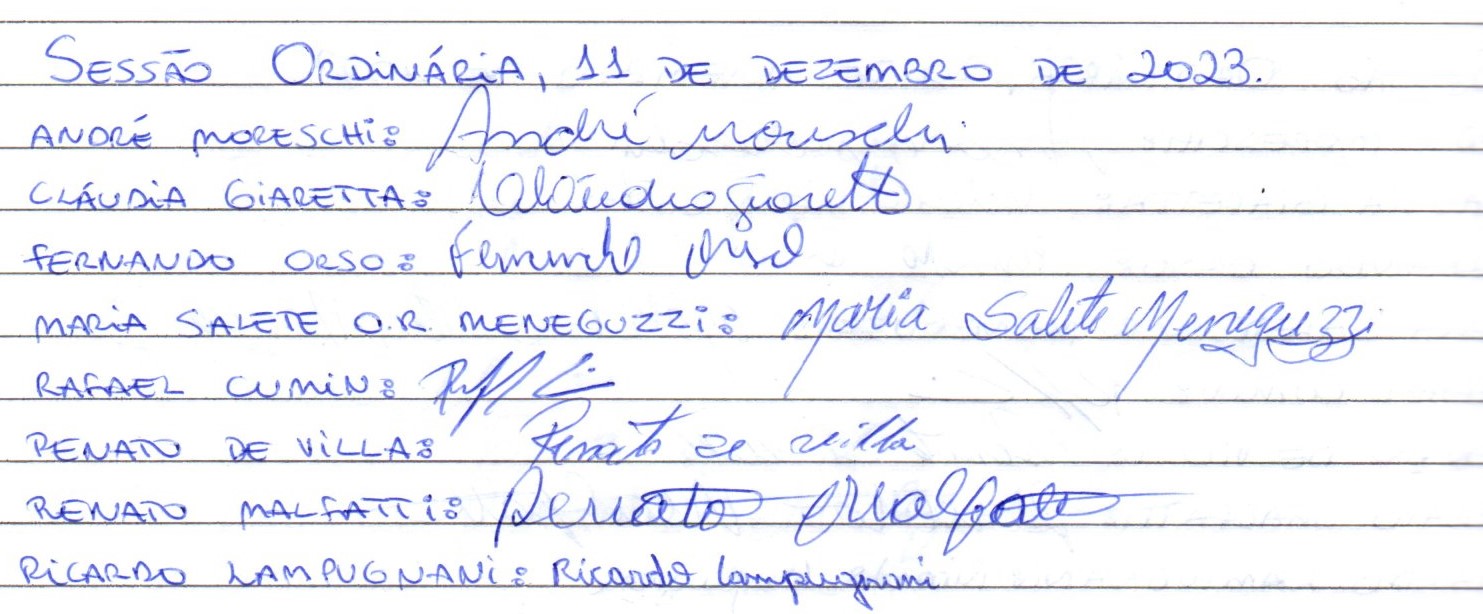 SESSÃO ORDINÁRIA, 11 DE DEZEMBRO DE 2023.
ANDRÉ MORESCHI: André Moreschi
CLÁUDIA GIARETTA: Claudia Giaretta
FERNANDO ORSO: Fernando Orso
MARIA SALETE O.R. MENEGUZZI: Maria Salete Meneguzzi
RAFAEL CUMIN:
RENATO DE VILLA: Renato de villa
RENATO MALFATTI: Renato Malfatti
RICARDO LAMPUGNANI: Ricardo Lampugnani